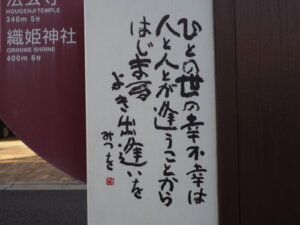 法玄寺
HOUGENJI TEMPLE
340m 5分
織姫神社
ORIHIME SHRINE
400m 6分
ひとの世の幸不幸は
人と人とが逢うことから
はじまる
よき出逢いを
みつを